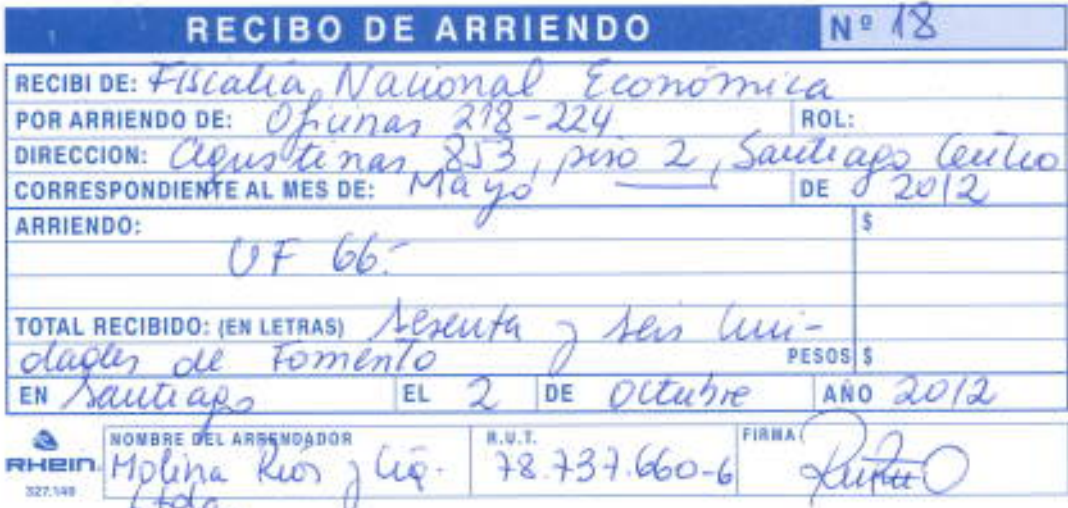 RECIBO DE ARRIENDO Nº 18
RECIBI DE: Fiscalía Nacional Económica
POR ARRIENDO DE: Oficinas 218-224 ROL:
DIRECCION: Agustinas 853, piso 2, Santiago Centro
CORRESPONDIENTE AL MES DE: Mayo DE 2012
ARRIENDO: $
UF 66.-
TOTAL RECIBIDO: (EN LETRAS) Sesenta y seis Uni-
dades de Fomento PESOS $
EN Santiago EL 2 DE Octubre AÑO 2012
RHEIN NOMBRE DEL ARRENDADOR R.U.T. FIRMA
Molina Ríos y Cía. 78.737.660-6
327.149 Ltda